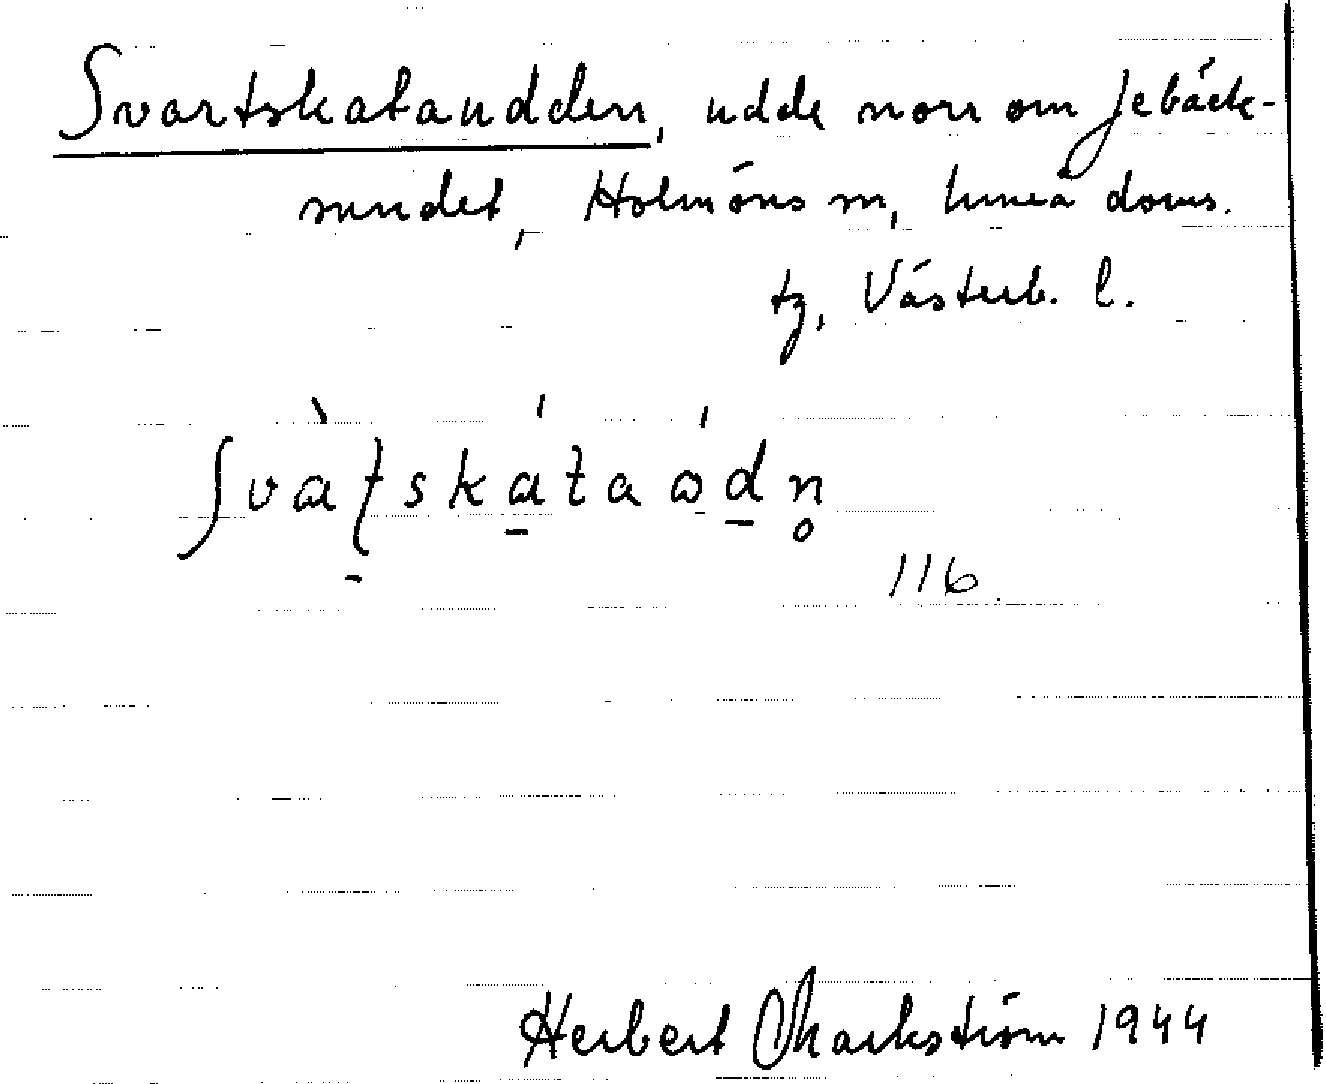 Svartskataudden, udde norr om Jebäck-
sundet, Holmöns sn, Umeå doms.
tg, Västerb. l.
116.
Herbert Markström 1944